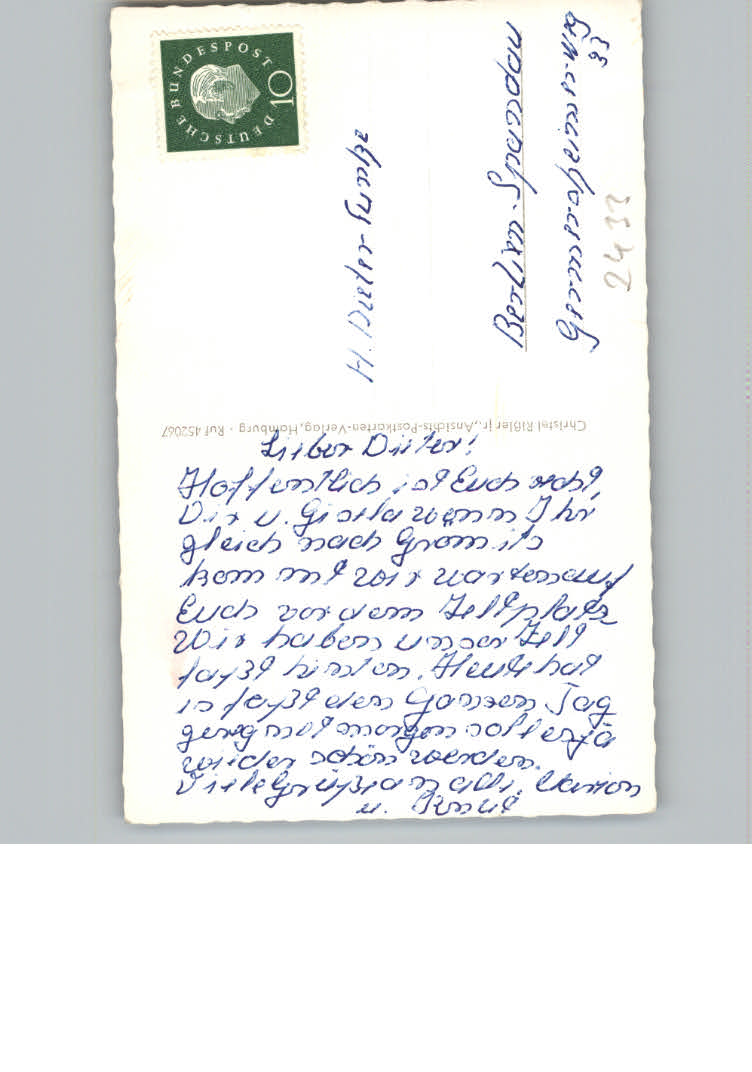 Lieber Dieter!
Hoffentlich ist Euch recht,
Dir u. Gisela wenn Ihr
gleich nach Grömits
kommt wir warten auf
Euch vor dem Zeltplatz
Wir haben unser Zelt
fayßt hinten. Heute hat
is fayßt den Ganzen Tag
geregnet morgen soll es ja
wieder schön werden.
Viele Grüße an alle. Marion
u. Knut
Christel Rißler jr., Ansichts-Postkarten-Verlag, Hamburg · Ruf 452067
DEUTSCHE BUNDESPOST
10
H. Dieter
Berlin-Spandau
33
2433